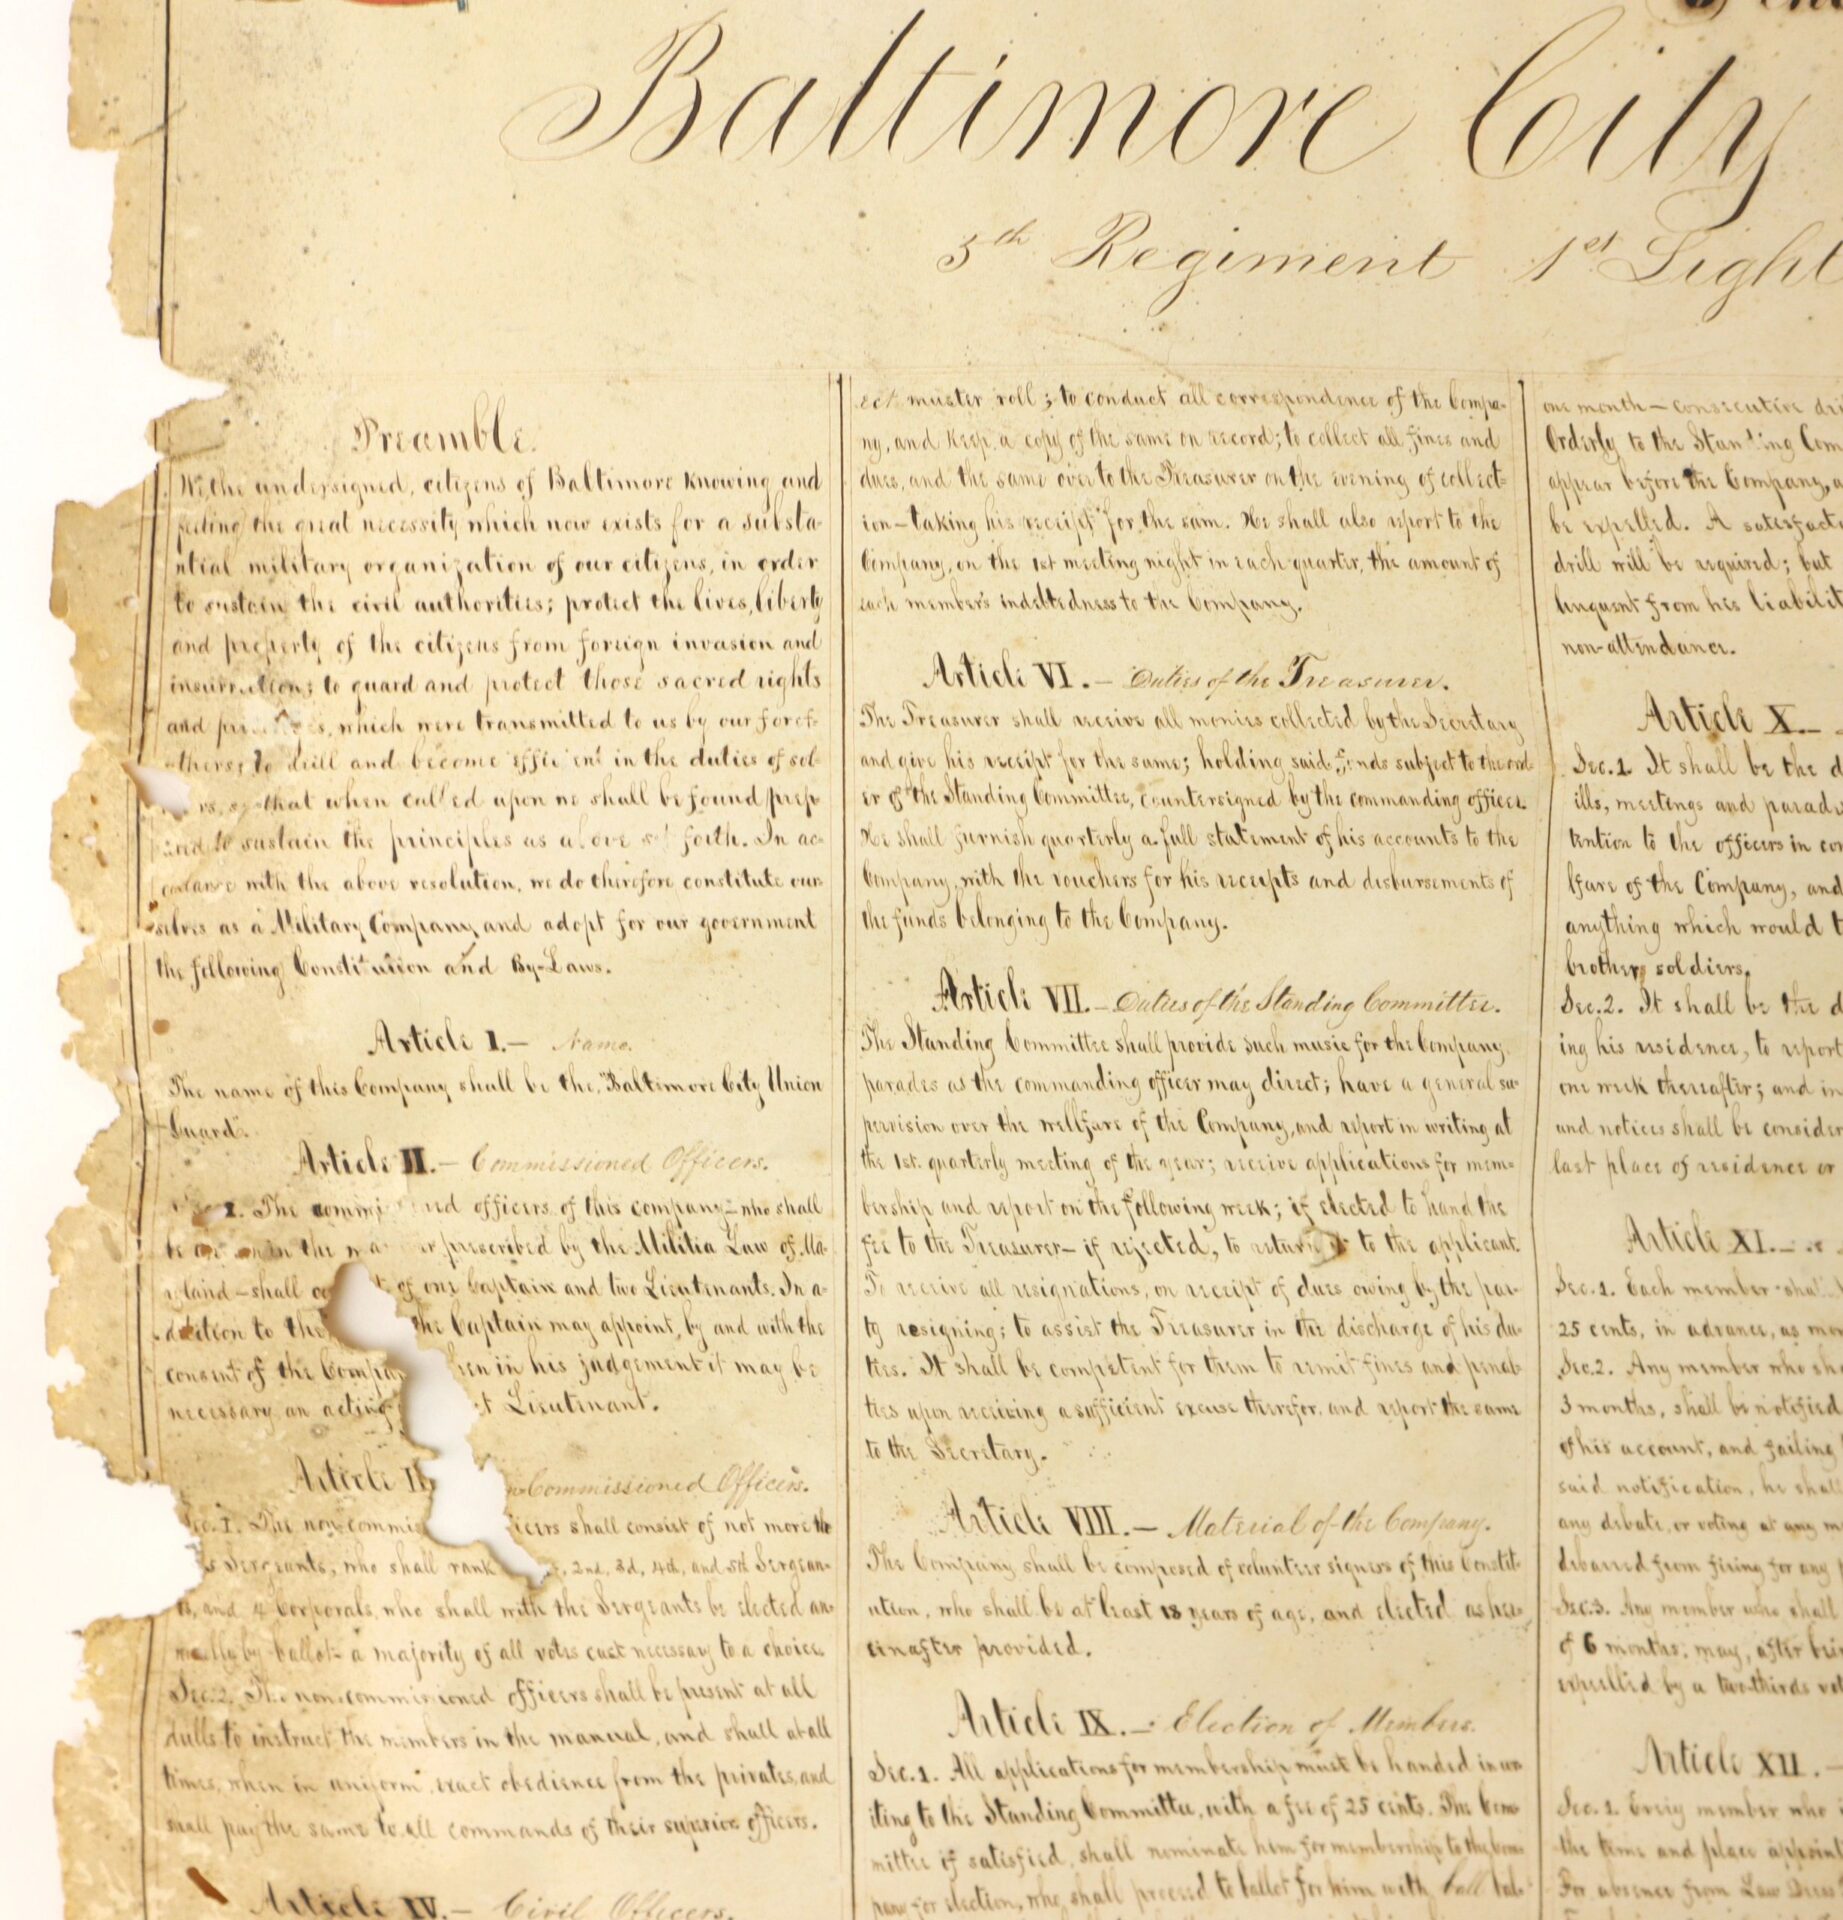 Baltimore City
5th Regiment 1st Light
Preamble.
We, the undersigned, citizens of Baltimore knowing and
feeling the great necessity which now exists for a substa-
ntial military organization of our citizens, in order
to sustain the civil authorities; protect the lives, liberty
and property of the citizens from foreign invasion and
insurrection; to guard and protect those sacred rights
and which were transmitted to us by our foref-
athers; to drill and become efficient in the duties of sol-
so that when called upon we shall be found prep-
ared to sustain the principles as above set forth. In ac-
cordance with the above resolution, we do therefore constitute our-
selves as a Military Company and adopt for our government
the following Constitution and By-Laws.
Article I.— Name.
The name of this Company shall be the, "Baltimore City Union
Guard".
Article II.— Commissioned Officers.
1. The officers of this company—who shall
in the prescribed by the Militia Law of Ma-
ryland—shall of one Captain and two Lieutenants. In a-
ddition to the the Captain may appoint, by and with the
consent of the in his judgement it may be
necessary an acting Lieutenant.
Article Commissioned Officers.
Sec. 1. The non-commis icers shall consist of not more th
5 Sergeants, who shall rank 2nd, 3d, 4th, and 5th Sergean-
ts, and 4 Corporals, who shall with the Sergeants be elected an-
nually by ballot- a majority of all votes cast necessary to a choice.
Sec. 2. The non-commissioned officers shall be present at all
drills to instruct the members in the manual, and shall at all
times, when in uniform exact obedience from the privates, and
shall pay the same to all commands of their superior officers.
Article IV.— Civil Officers.
ect muster roll; to conduct all correspondence of the Compa-
ny, and keep a copy of the same on record; to collect all fines and
dues, and the same over to the Treasurer on the evening of collect-
ion—taking his receipt for the sam. He shall also report to the
Company, on the 1st meeting night in each quarter, the amount of
each members indebtedness to the Company.
Article VI.— Duties of the Treasurer.
The Treasurer shall receive all monies collected by the Secretary
and give his receipt for the same; holding said funds subject to the ord-
er of the Standing Committee, countersigned by the commanding officer.
He shall furnish quarterly a full statement of his accounts to the
Company, with the vouchers for his receipts and disbursements of
the funds belonging to the Company.
Article VII.— Duties of the Standing Committee.
The Standing Committee shall provide such music for the Company
parades as the commanding officer may direct; have a general su-
pervision over the wellfare of the Company, and report in writing at
the 1st. quarterly meeting of the year; receive applications for mem-
bership and report on the following week; if elected to hand the
fee to the Treasurer— if rejected, to return it to the applicant.
To receive all resignations, on receipt of dues owing by the par-
ty resigning; to assist the Treasurer in the discharge of his du-
ties. It shall be competent for them to remit fines and penal-
ties upon receiving a sufficient excuse therefor, and report the same
to the Secretary.
Article VIII.— Material of the Company.
The Company shall be composed of volunteer signers of this Constit-
ution, who shall be at least 18 years of age, and elected as her-
einafter provided.
Article IX.— Election of Members.
Sec. 1. All applications for membership must be handed in wr
iting to the Standing Committee, with a fee of 25 cents. The Com-
mittee if satisfied, shall nominate him for membership to the Com-
pany for election, who shall proceed to ballot for him with ball bal-
one month—consecutive dri
Orderly to the Standing Com
appear before the Company, a
be expelled. A satisfact
drill will be required; but
linquent from his liabilit
non-attendance.
Article X.—
Sec. 1. It shall be the d
ills, meetings and parade
tention to the officers in co
lfare of the Company, and
anything which would t
brother soldiers.
Sec. 2. It shall be the d
ing his residence, to report
one week thereafter; and in
and notices shall be consider
last place of residence or
Article XI.—
Sec. 1. Each member shal
25 cents, in advance, as mo
Sec. 2. Any member who sha
3 months, shall be notified
of his account, and failing
said notification, he shall
any debate, or voting at any m
debarred from firing for any
Sec. 3. Any member who shall
of 6 months, may, after bei
expelled by a two-thirds vot
Article XII.—
Sec. 1. Every member who
the time and place appoint
For absence from